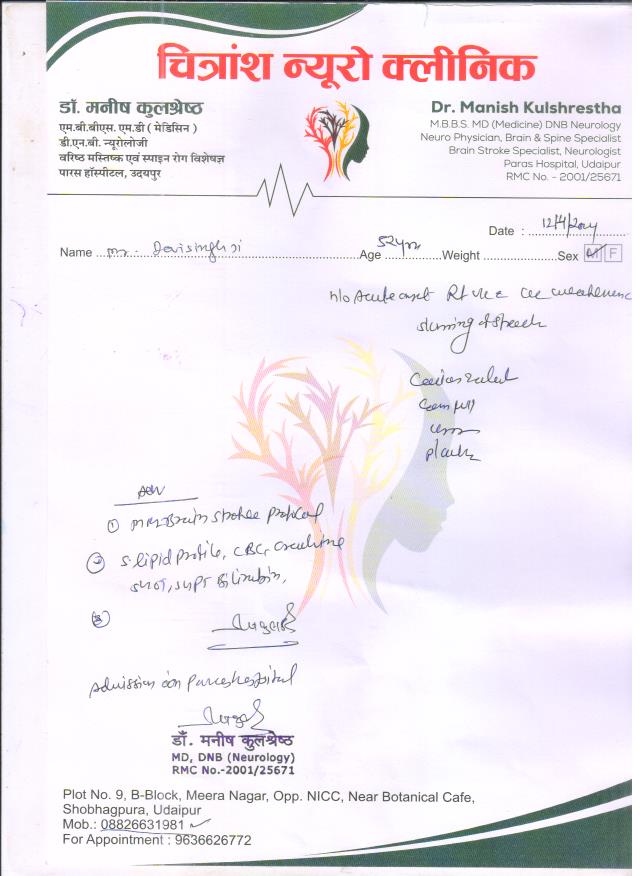 चित्रांश न्यूरो क्लीनिक
डॉ. मनीष कुलश्रेष्ठ
एम.बी.बीएस. एम.डी ( मेडिसिन )
डी.एन.बी. न्यूरोलोजी
वरिष्ठ मस्तिष्क एवं स्पाइन रोग विशेषज्ञ
पारस हॉस्पीटल, उदयपुर
Dr. Manish Kulshrestha
M.B.B.S. MD (Medicine) DNB Neurology
Neuro Physician, Brain & Spine Specialist
Brain Stroke Specialist, Neurologist
Paras Hospital, Udaipur
RMC No. - 2001/25671
Date :
Name Mr. Devisingh ji Age 52yrs Weight Sex M F
h/o Acute onset Rt
slurring of speech
Adv
① MRI Brain stroke protocol
② S. lipid profile, CBC, creatinine
SGOT, SGPT Bilirubin,
③
Admission in Paras hospital
डॉ. मनीष कुलश्रेष्ठ
MD, DNB (Neurology)
RMC No.-2001/25671
Plot No. 9, B-Block, Meera Nagar, Opp. NICC, Near Botanical Cafe,
Shobhagpura, Udaipur
Mob.: 08826631981
For Appointment : 9636626772